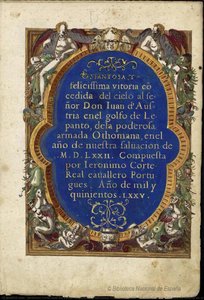 ESPANTOSA, Y
felicissima vitoria cō
cedida del cielo al se
ñor Don Iuan d'Aus
tria enel golfo de Le
panto, de la poderosa
armada Othomana, enel
año de nuestra saluacion de
M.D.LXXII. Compuesta
por Ieronimo Corte
Real cauallero Portu
gues. Año de mil y
quinientos. LXXV.
© Biblioteca Nacional de España